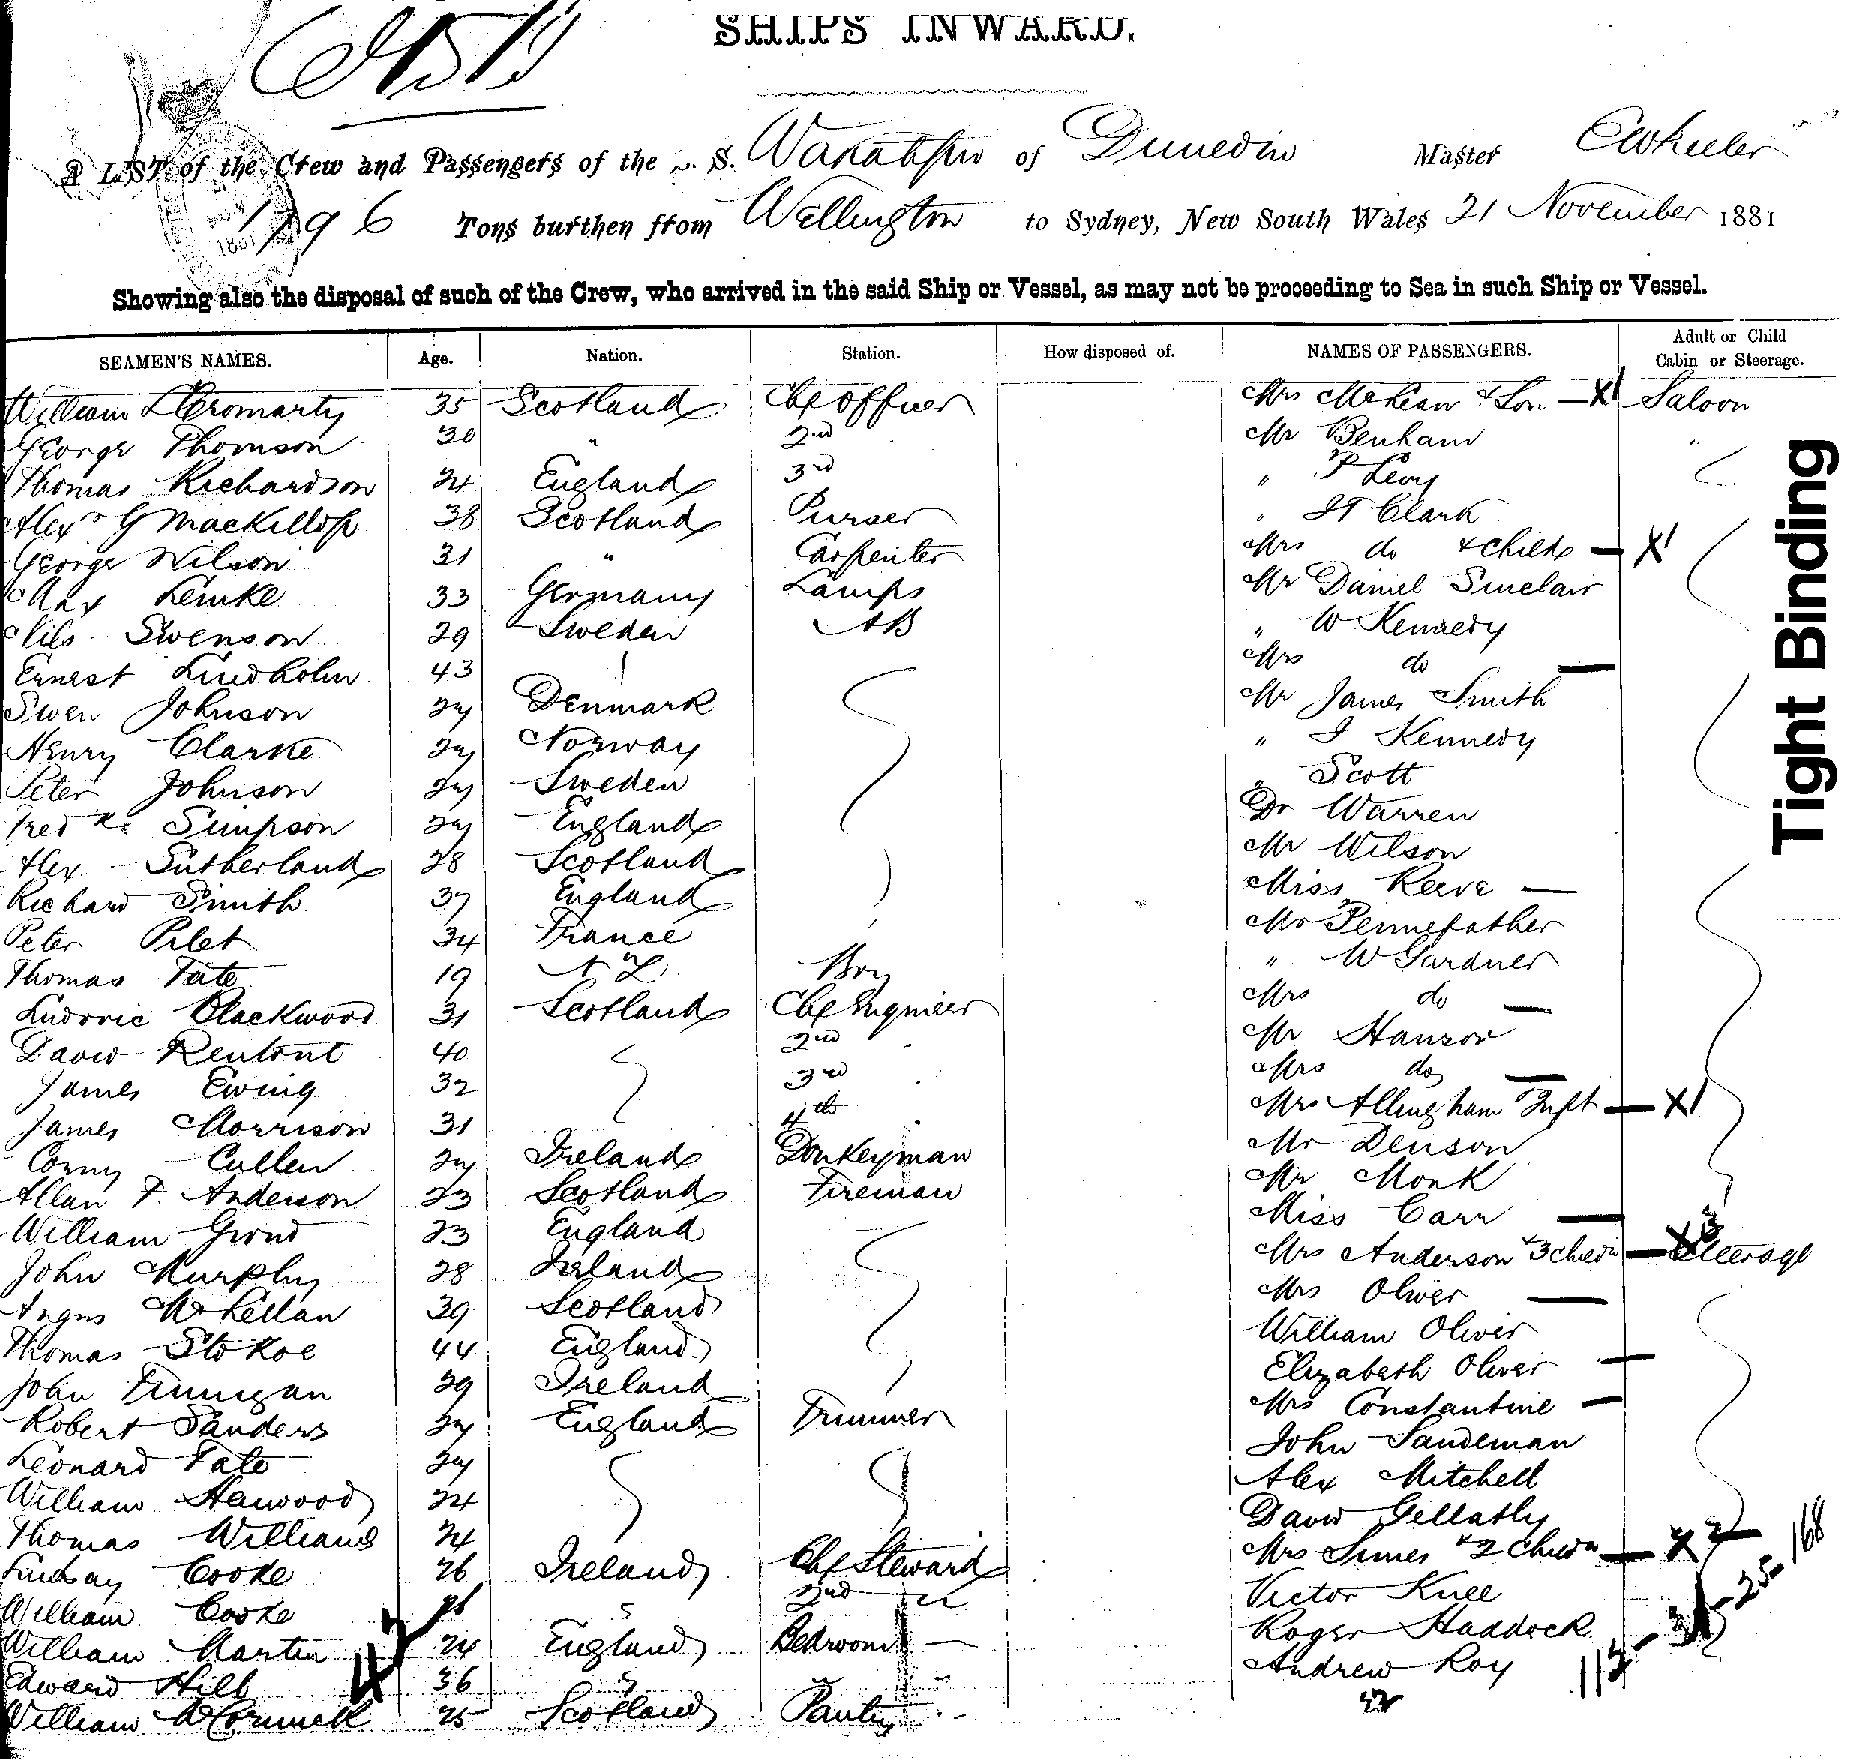 SHIPS INWARD.
A LIST of the Crew and Passengers of the S. S. Wakatipu of Dunedin Master E Wheeler
1796 Tons burthen from Wellington to Sydney, New South Wales 21 November 1881
Showing also the disposal of such of the Crew, who arrived in the said Ship or Vessel, as may not be proceeding to Sea in such Ship or Vessel.
SEAMEN'S NAMES. Age. Nation. Station. How disposed of. NAMES OF PASSENGERS. Adult or Child Cabin or Steerage.
William L Cromarty 35 Scotland Chf Officer Mrs McLean & Son — X1 Saloon
George Thomson 30 " 2nd Mr Benham "
Thomas Richardson 24 England 3rd " P Levy
Alexr G Mackillop 38 Scotland Purser " Clark
George Wilson 31 " Carpenter Mrs do & child — X1
Max Lemke 33 Germany Lamps Mr Daniel Sinclair
Nils Swenson 29 Sweden AB " W Kennedy
Ernest Lindholm 43 Mrs do —
Swen Johnson 27 Denmark Mr James Smith
Henry Clarke 27 Norway " J Kennedy
Peter Johnson 27 Sweden " Scott
Fredk Simpson 27 England Dr Warren
Alex Sutherland 28 Scotland Mr Wilson
Richard Smith 37 England Miss Reeve —
Peter Pilet 34 France Mr Pennefather
Thomas Tate 19 N Z Boy " W Gardner
Ludovic Blackwood 31 Scotland Chf Engineer Mrs do —
David Rentont 40 2nd Mr Hanson
James Ewing 32 3rd Mrs do —
James Morrison 31 4th Mrs Allingham & Inft — X1
Corny Cullen 27 Ireland Donkeyman Mr Denson
Allan F. Anderson 23 Scotland Fireman Mr Monk
William Grond 23 England Miss Carr —
John Murphy 28 Ireland Mrs Anderson & 3 childn — X3 Steerage
Angus McLellan 39 Scotland Mrs Oliver —
Thomas Stokoe 44 England William Oliver
John Finnigan 29 Ireland Elizabeth Oliver —
Robert Sanders 27 England Trimmer Mrs Constantine —
Leonard Tate 27 John Sandeman
William Harwood 24 Alex Mitchell
Thomas Williams 24 David Gellatly
Lindsay Cooke 26 Ireland Chf Steward Mrs Simes & 2 Childn — X2
William Cooke " 2nd " Victor Knee
William Martin 24 England Bedroom — Roger Haddock
Edward Hill 36 " " Andrew Roy
William McCormick 25 Scotland Pantry
43
113 - 3 - 25 - 168
Tight Binding